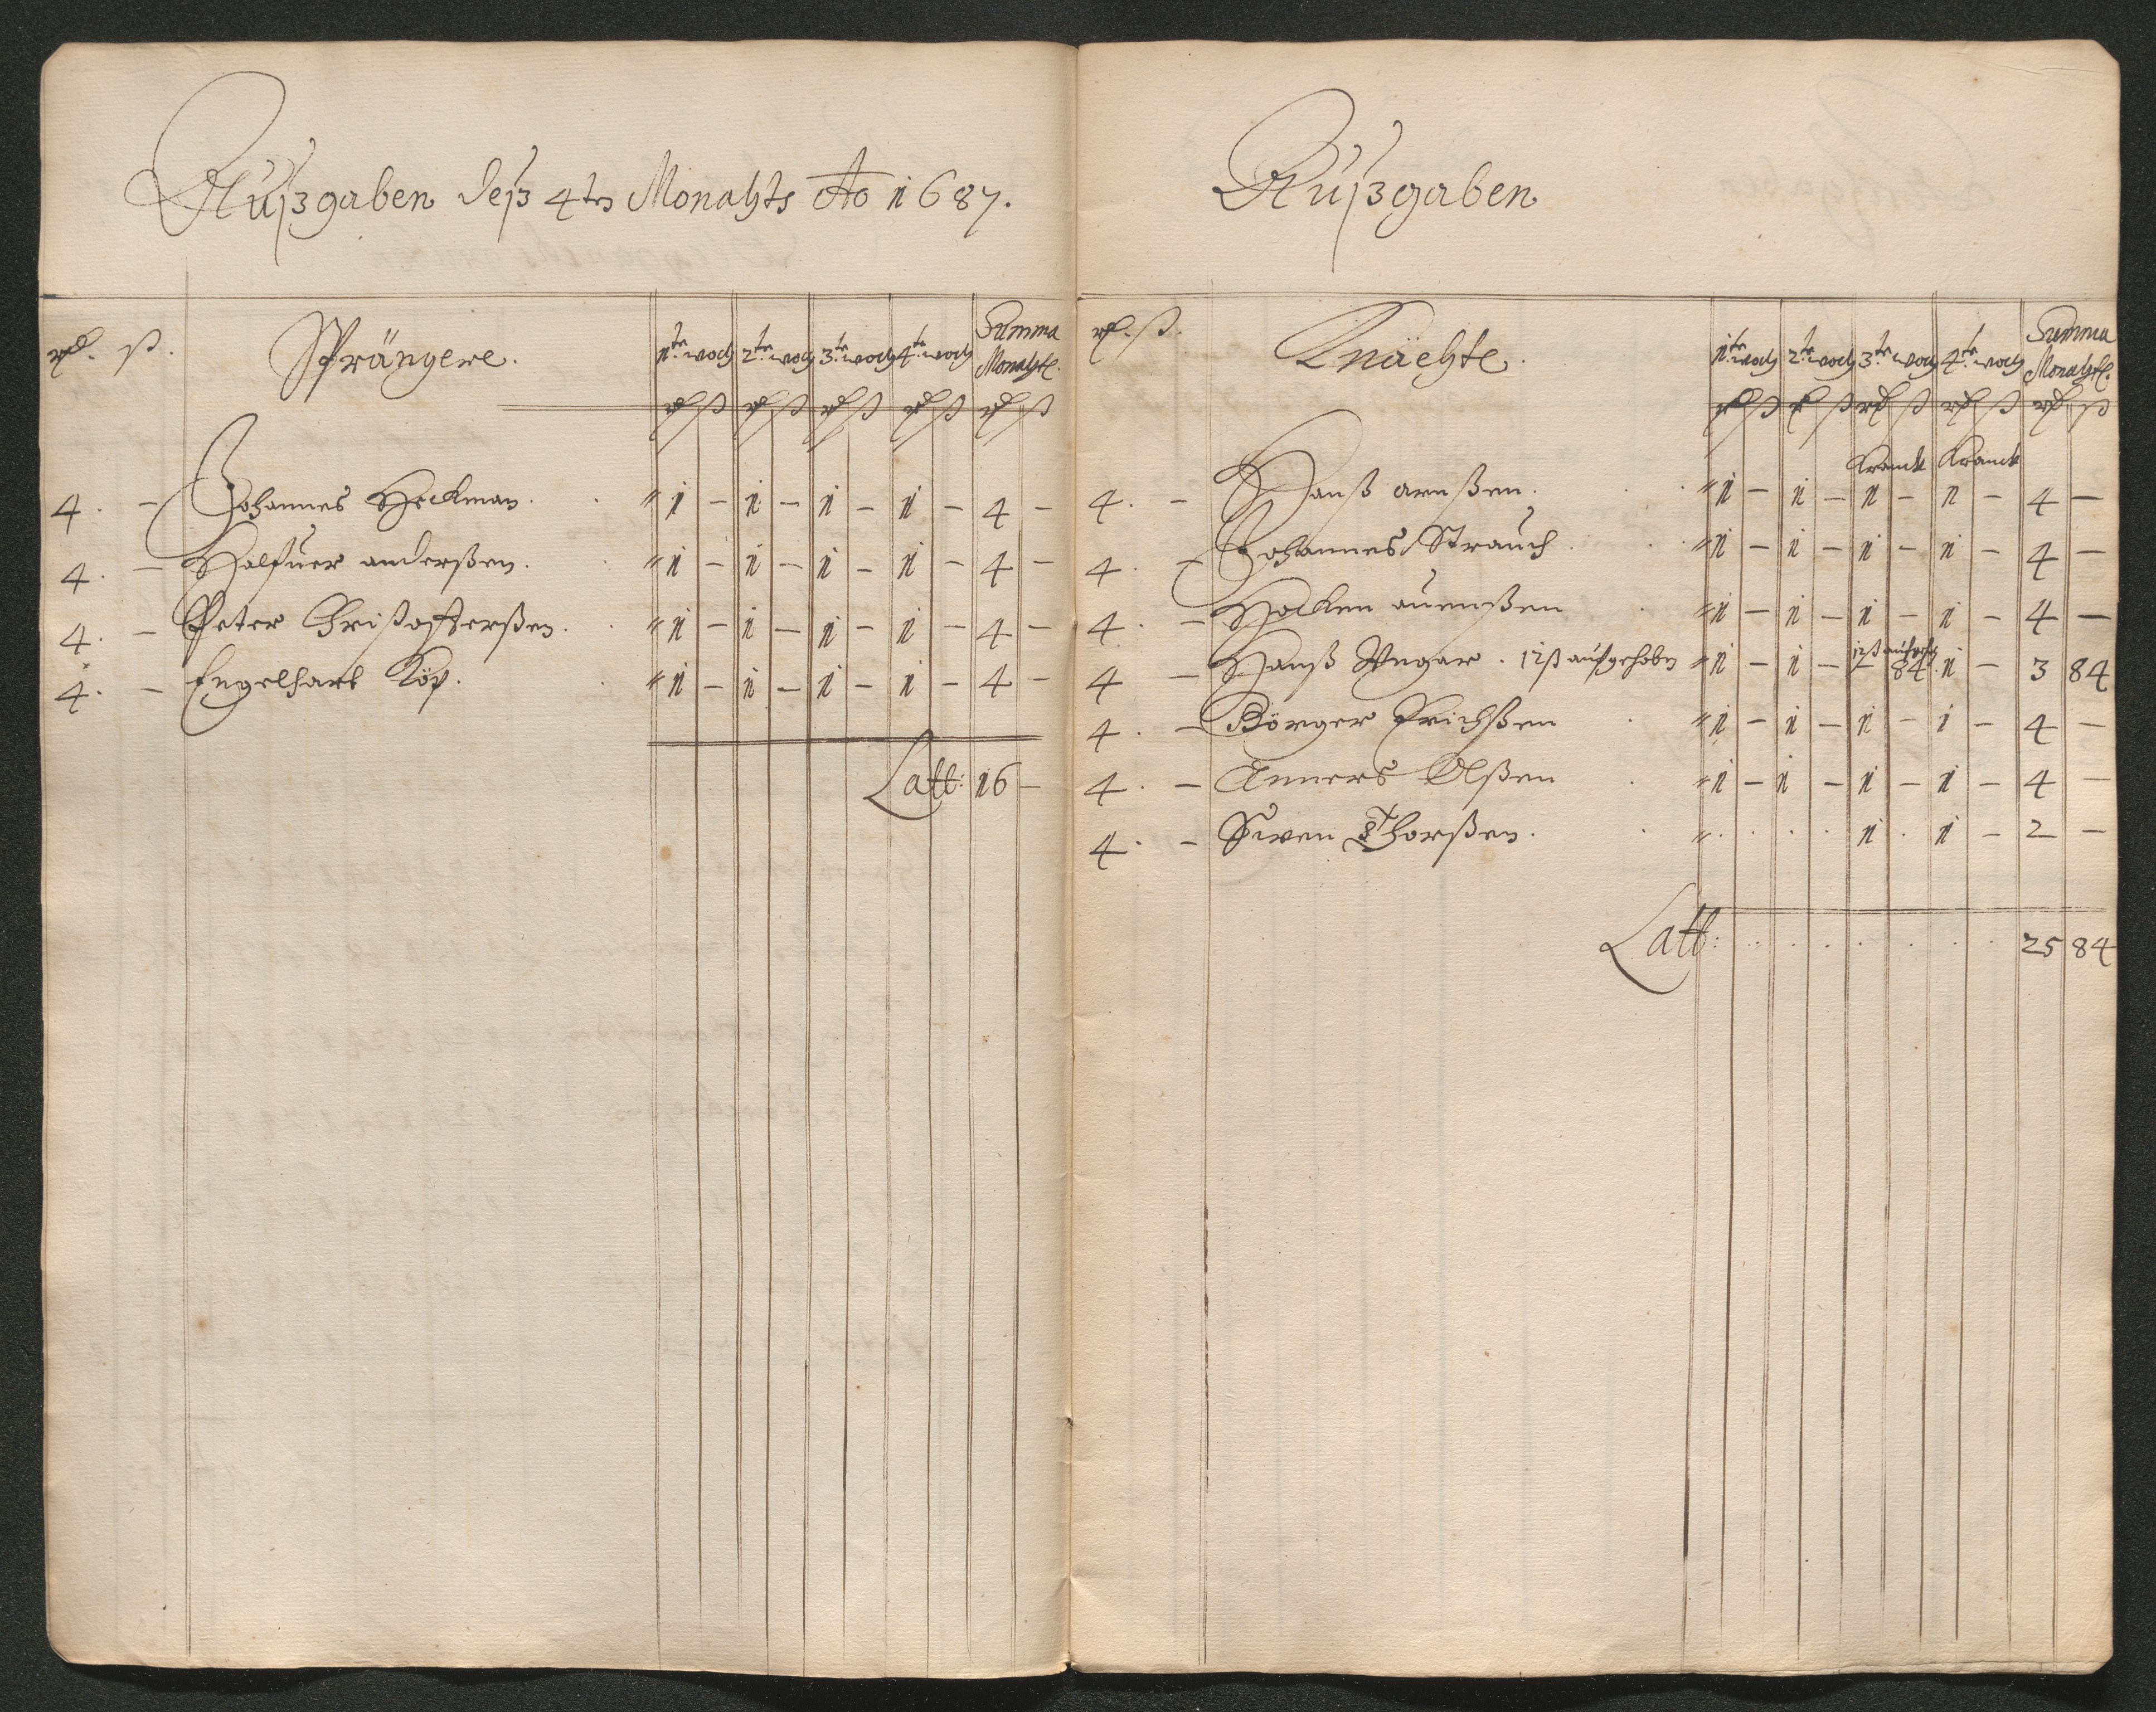 Außgaben deß 4ten Monahts Ao 1687.
rd. ß. Sprängere. 1te. woch 2te. woch 3te. woch 4te. woch Summa Monahtl.
rd ß rd ß rd ß rd ß rd ß
4. – Johannes Heckman. " 1 – 1 – 1 – 1 – 4 –
4. – Halfuer anderßen. " 1 – 1 – 1 – 1 – 4 –
4. – Peter Christofferßen. " 1 – 1 – 1 – 1 – 4 –
4. – Engelhart Köp. " 1 – 1 – 1 – 1 – 4 –
Latt: 16 –
Außgaben
rd. ß. Knächte. 1te. woch 2te. woch 3te. woch 4te. woch Summa Monahtl.
rd ß rd ß rd ß rd ß rd ß
Kranck Kranck
4. – Hanß arnßen. " 1 – 1 – 1 – 1 – 4 –
4. – Johannes Strauch. " 1 – 1 – 1 – 1 – 4 –
4. – Hacken auenßen " 1 – 1 – 1 – 1 – 4 –
12ß
4 – Hanß Ungar. 12ß aufgehoben " 1 – 1 – – 84. 1 – 3 84
4. – Börger Erichßen " 1 – 1 – 1 – 1 – 4 –
4. – Anners Olßen " 1 – 1 – 1 – 1 – 4 –
4. – Siven Thorßen. " . . . . 1 . 1 – 2 –
Latt: . . . . . . . 25 84